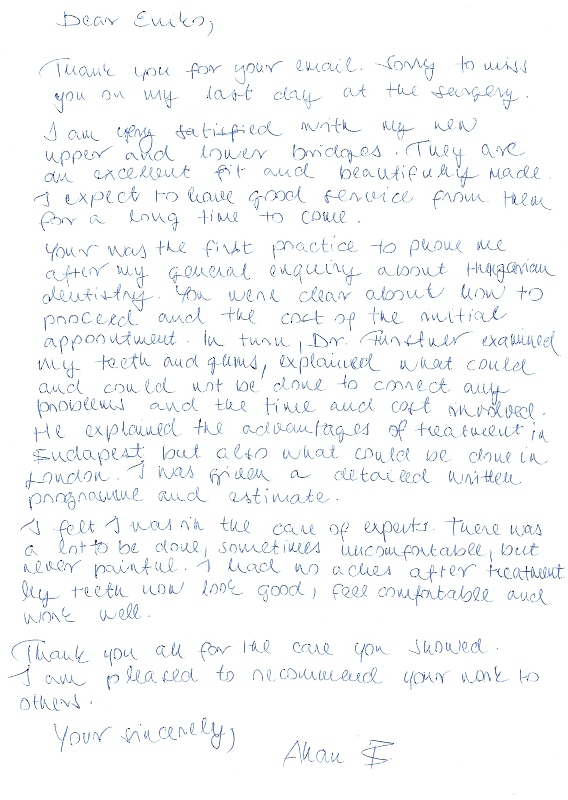 Dear Eniko,
Thank you for your email. Sorry to miss
you on my last day at the surgery.
I am very satisfied with my new
upper and lower bridges. They are
an excellent fit and beautifully made.
I expect to have good service from them
for a long time to come.
Your was the first practice to phone me
after my general enquiry about Hungarian
dentistry. You were clear about how to
proceed and the cost of the initial
appointment. In turn, Dr. examined
my teeth and gums, explained what could
and could not be done to correct any
problems and the time and cost involved.
He explained the advantages of treatment in
Budapest but also what could be done in
London. I was given a detailed written
programme and estimate.
I felt I was in the care of experts. There was
a lot to be done, sometimes uncomfortable, but
never painful. I had no aches after treatment
My teeth now look good, feel comfortable and
work well.
Thank you all for the care you showed.
I am pleased to recommend your work to
others.
Your sincerely,